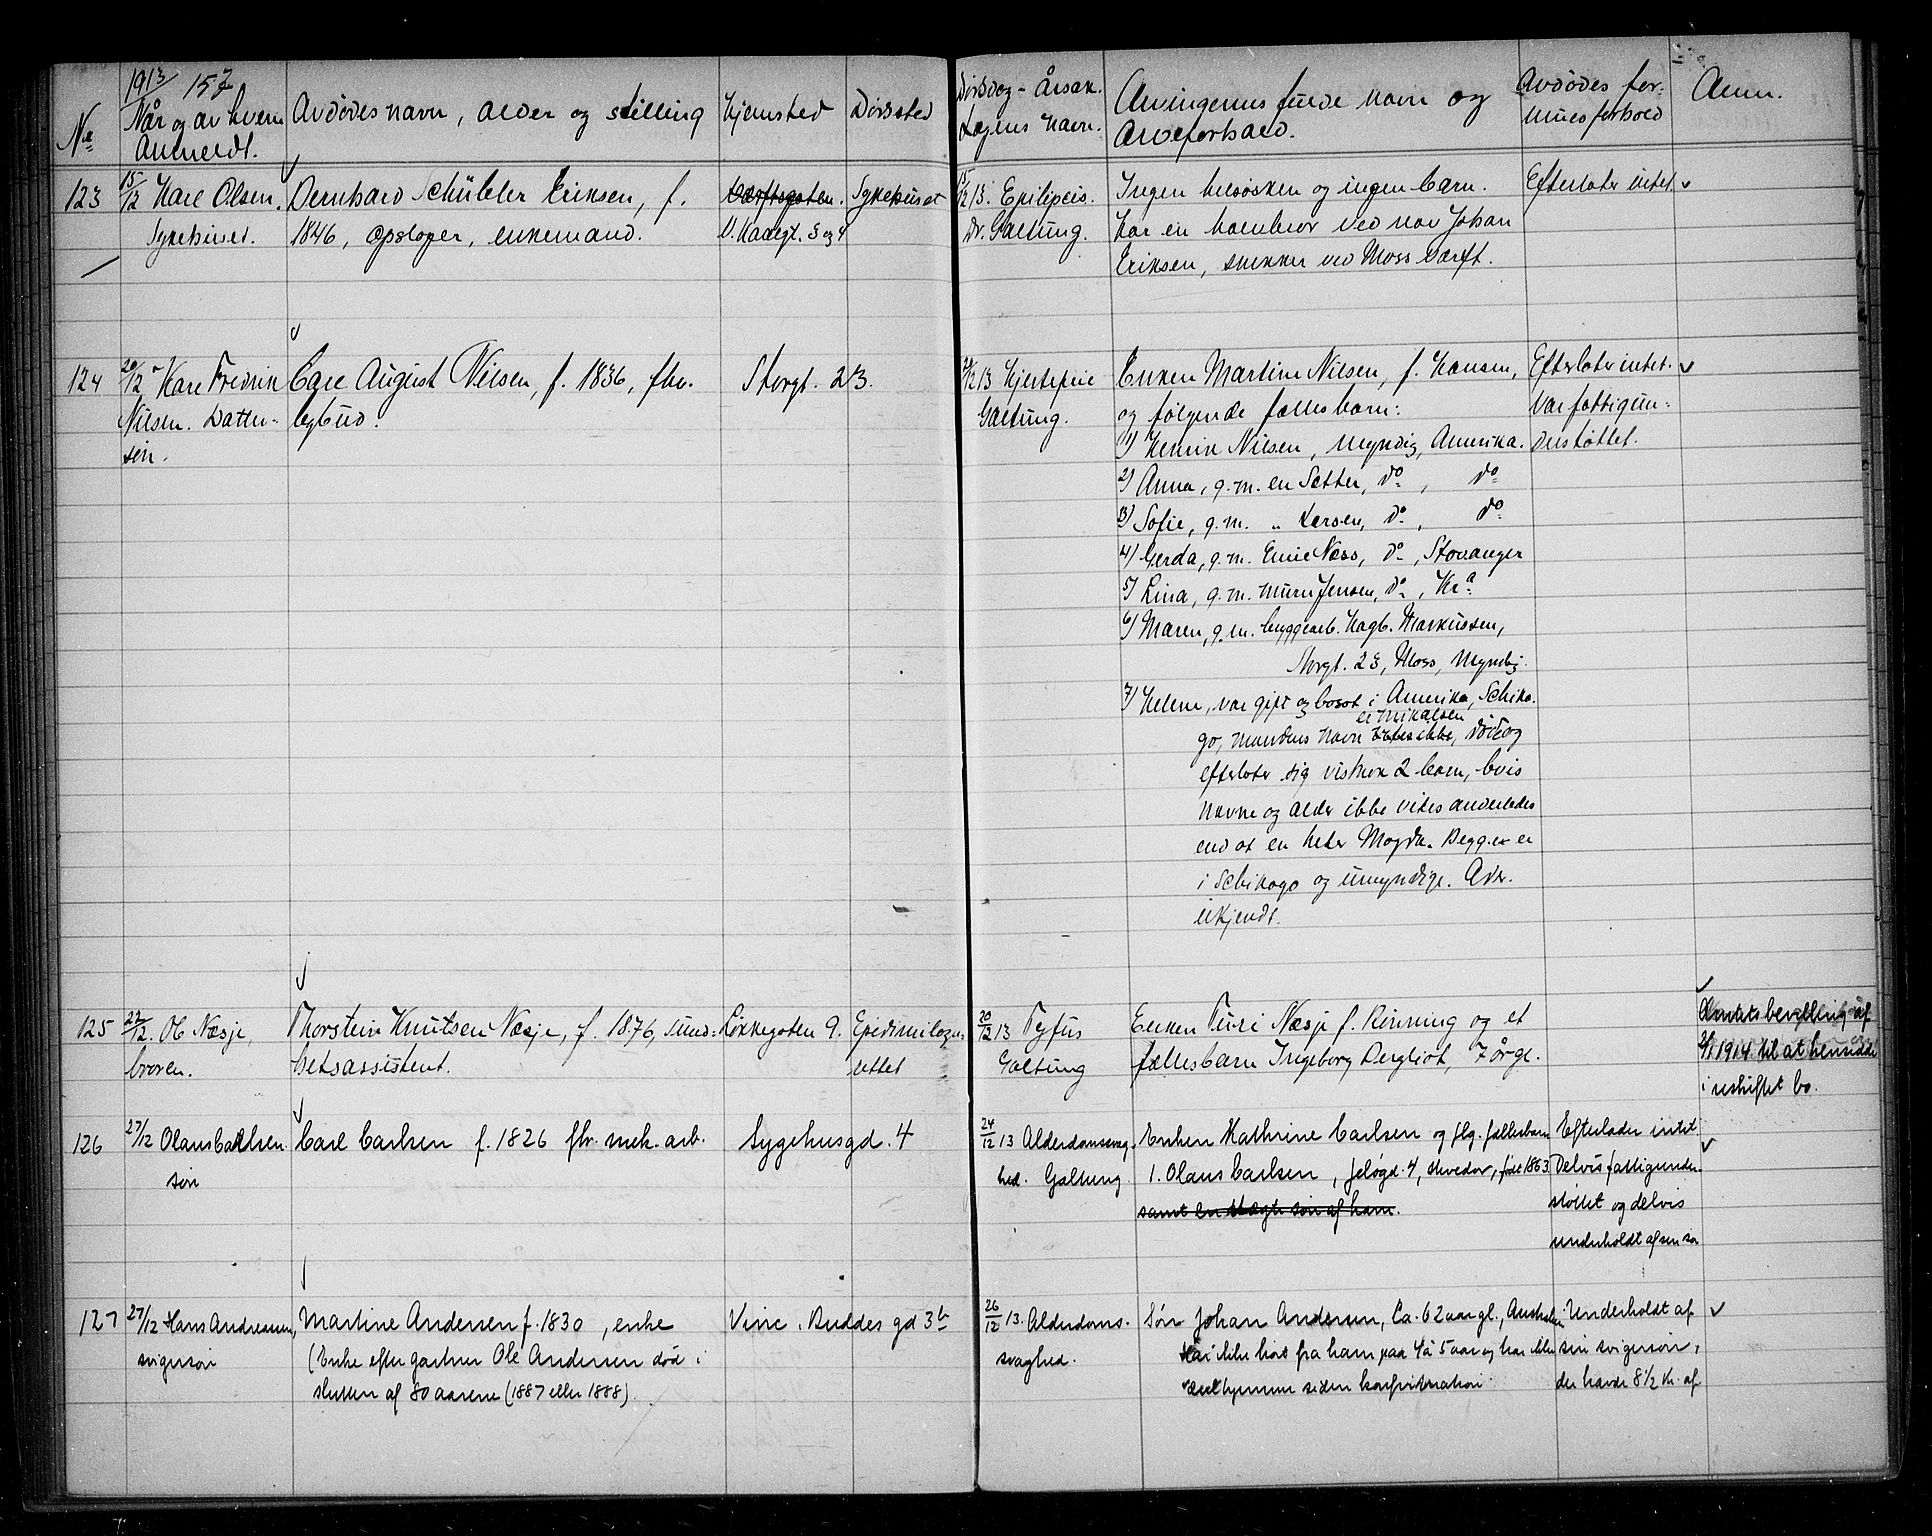 1913 157
No
Når og av hvem
Anmeldt.
Avdödes navn, alder og stilling
Hjemsted
Dödssted
Dödsdag - Årsak.
Lægens navn.
Arvingernes fulde navn og
Arveforhold.
Avdödes for-
muesforhold
Anm.
123
15/12 Karl Olsen.
Sykehuset.
Bernhard Schübeler Eriksen, f.
1846, opsloper, enkemand.
Værftsgaten.
V. Kaaegt. 3 og 4
Sykehuset
15/12 13. Epilepsis.
Dr. Galtung.
Ingen helsösken og ingen barn.
Har en halvbror ved nav Johan
Eriksen, snekker ved Moss Værft.
Efterlater intet
124
20/12 Karl Fredrik
Nilsen. Datter-
sön.
Carl August Nilsen, f. 1836, fhv.
bybud.
Storgt. 23.
20/12 13 Hjertefeil
Galtung.
Enken Martine Nilsen, f. Hansen,
og følgende fællesbarn:
1) Henrik Nilsen, myndig, Amerika.
2) Anna, g. m. en Sætter, do, do
3) Sofie, g. m. " Larsen, do, do
4) Gerda, g. m. Emil Næss, do, Stavanger
5) Lina, g. m. murer Jensen, do, Kra
6) Maren, g. m. byggearb. Hagb. Markussen,
Storgt. 23, Moss, myndig.
7) Helene, var gift og bosat i Amerika, Schika-
er Mikalsen
go, mandens navn vites ikke, död og
efterlater sig visknok 2 barn, hvis
navne og alder ikke vites anderledes
end at en heter Magda. Begge er
i Schikago og umyndige. Adr.
ukjendt.
Efterlater intet.
Var fattigun-
derstøttet.
125
22/12. Ol. Næsje,
broren.
Thorstein Knutsen Næsje, f. 1876, sund-
hetsassistent.
Løkkegaten 9.
Epidimilaza-
rettet
20/12 13 Tyfus
Galtung
Enken Turi Næsje f. Rönning og et
fællesbarn Ingeborg Bergliot, 7 år gl.
Amtets bevilling af
2/1 1914 til at hensidde
i uskiftet bo.
126
27/12 Olaus Carlsen
sön
Carl Carlsen f. 1826 fhv. mek. arb.
Sygehusgd. 4
24/12 13 Alderdomssvag-
hed. Galtung.
Enken Kathrine Carlsen og flg. fællesbarn
1. Olaus Carlsen, Jeløgd. 4, skrædder, født 1863.
samt en uægte sön af ham.
Efterlader intet
Delvis fattigunder-
støttet og delvis
underholdt af sin sön
127
27/12 Hans Andresen,
svigersön
Martine Andersen f. 1830, enke
(Enke efter gartner Ole Andersen död i
slutten af 80 aarene (1887 eller 1888).
Vinc. Buddes gd 3b
26/12 13. Alderdoms-
svaghed.
Sön Johan Andersen, Ca. 62 aar gl., Australien.
Har ikke hört fra ham paa 4 à 5 aar og har ikke
været hjemme siden konfirmation.
Underholdt af
sin svigersön,
der havde 8 1/2 kr. af